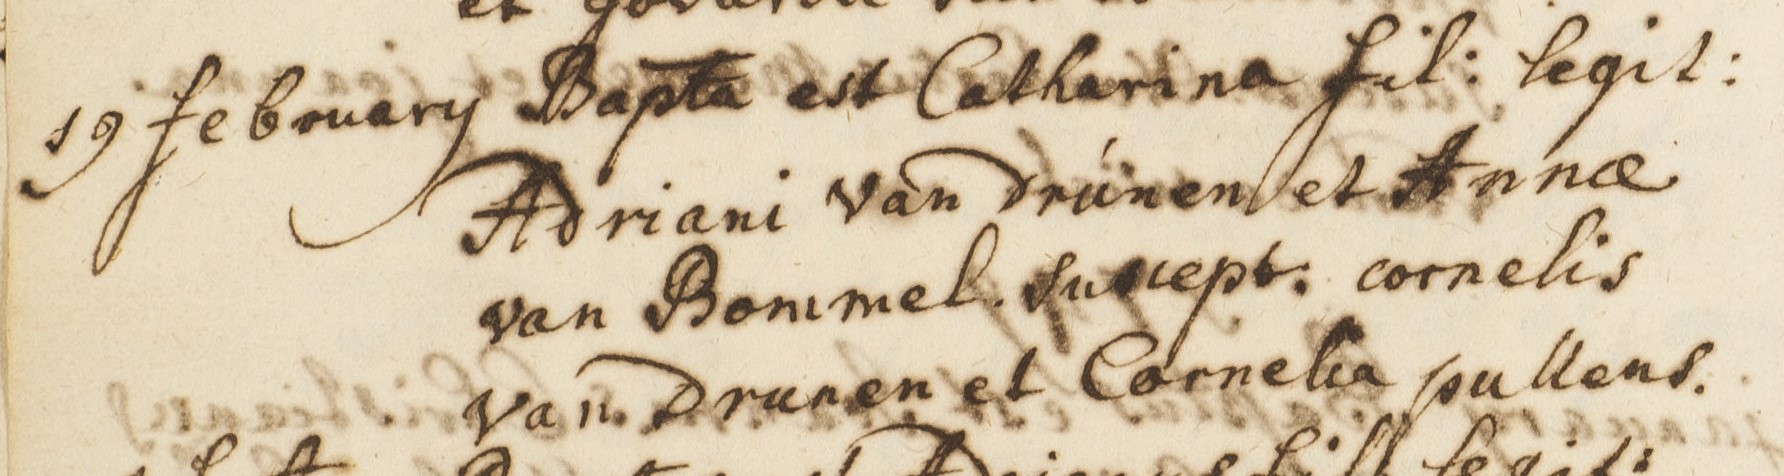 19 february Bapta est Catharina fil: legit:
Adriani van Drúnen et Annæ
van Bommel. suscept: cornelis
van Drunen et Cornelia pullens.